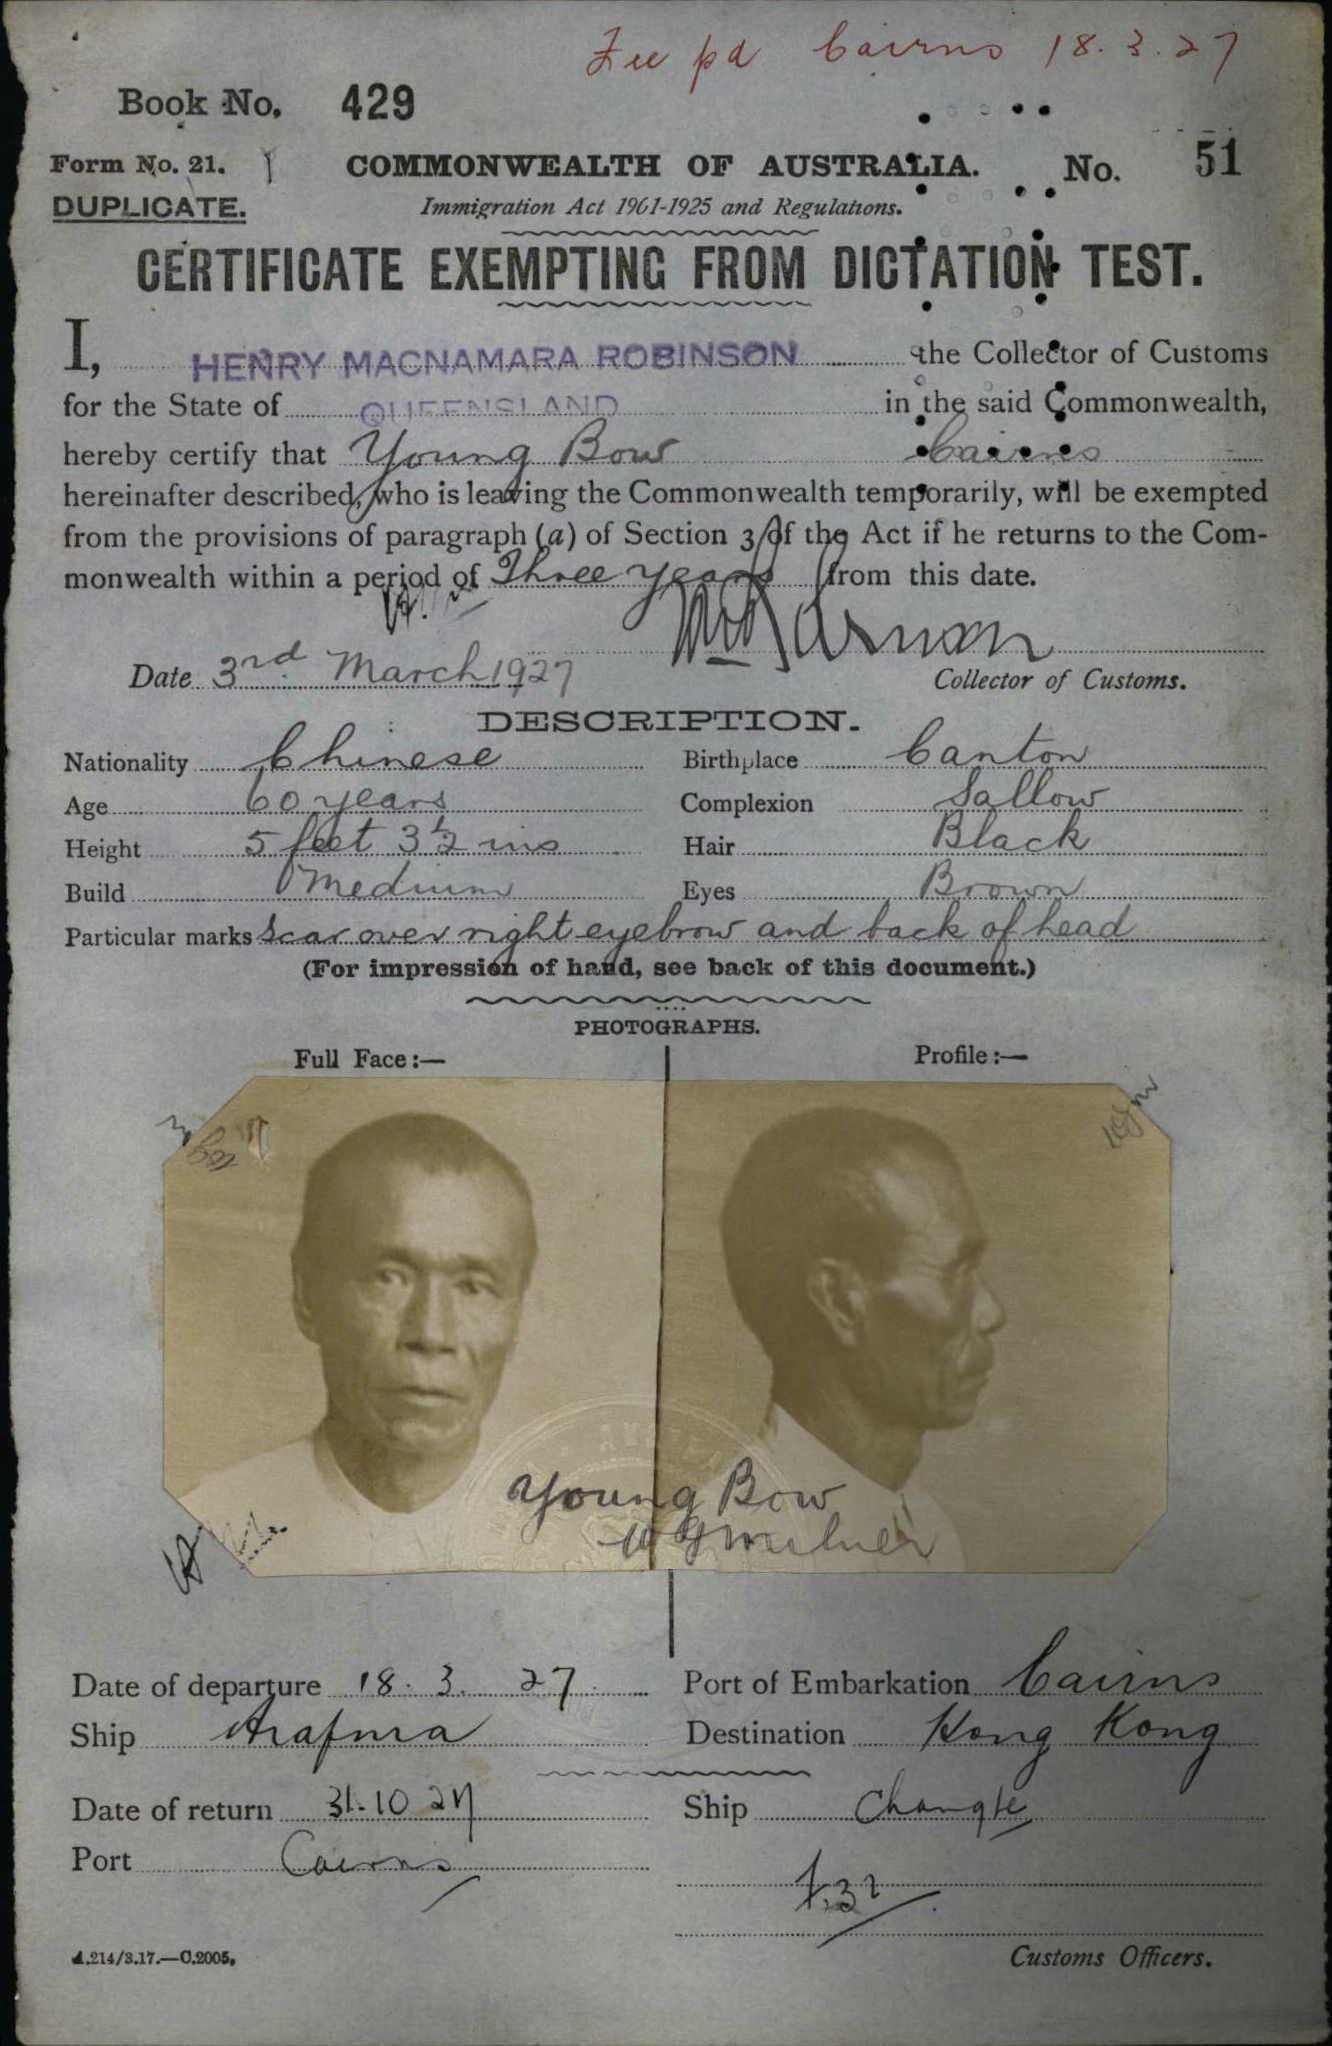 Fee pd Cairns 18.3.27
Book No. 429
Form No. 21. COMMONWEALTH OF AUSTRALIA. No. 51
DUPLICATE. Immigration Act 1901-1925 and Regulations.
CERTIFICATE EXEMPTING FROM DICTATION TEST.
I, HENRY MACNAMARA ROBINSON the Collector of Customs
for the State of QUEENSLAND in the said Commonwealth,
hereby certify that Young Bow Cairns
hereinafter described, who is leaving the Commonwealth temporarily, will be exempted
from the provisions of paragraph (a) of Section 3 of the Act if he returns to the Com-
monwealth within a period of Three years from this date.
Date 3rd March 1927 Collector of Customs.
DESCRIPTION.
Nationality Chinese Birthplace Canton
Age 60 years Complexion Sallow
Height 5 feet 3 1/2 ins Hair Black
Build Medium Eyes Brown
Particular marks Scar over right eyebrow and back of head
(For impression of hand, see back of this document.)
PHOTOGRAPHS.
Full Face:— Profile:—
Young Bow
Date of departure 18.3.27 Port of Embarkation Cairns
Ship Arafura Destination Hong Kong
Date of return 31.10 27 Ship Changte
Port Cairns
A.214/3.17.—C.2005. Customs Officers.